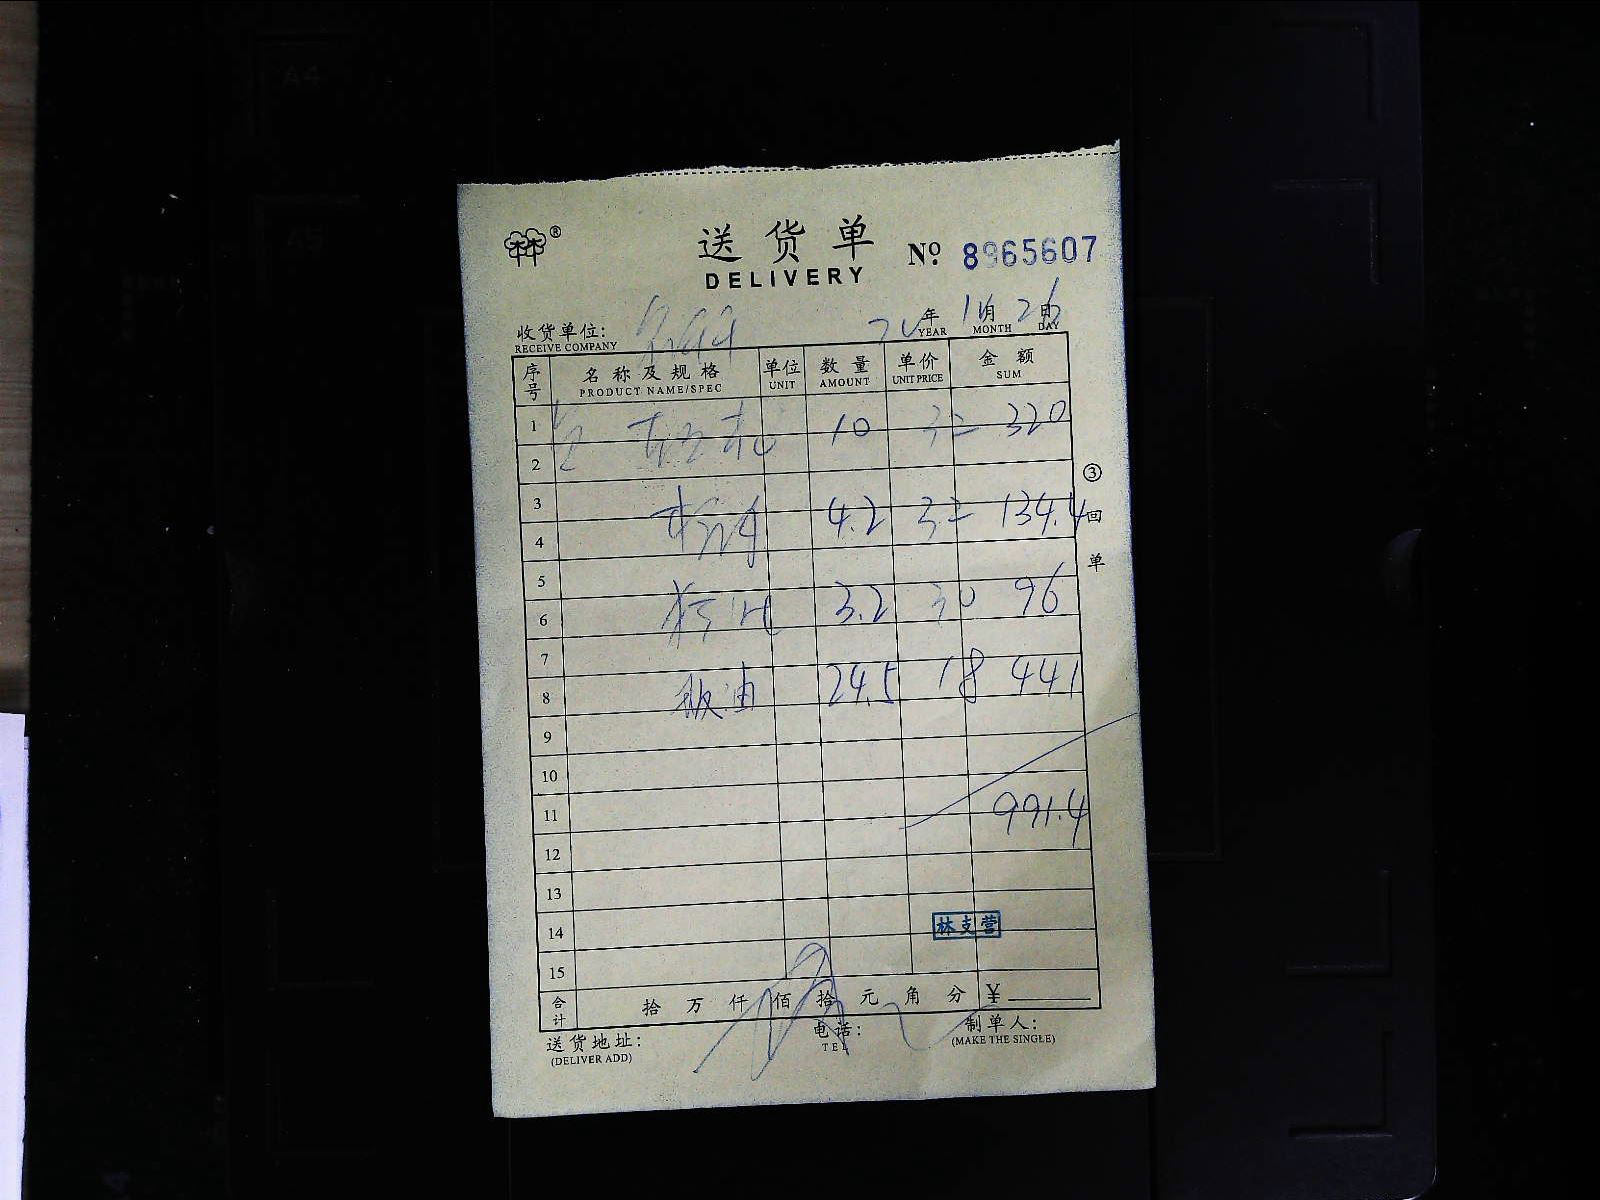 送货单
DELIVERY
№ 8965607
收货单位:
RECEIVE COMPANY
年 YEAR 月 MONTH 26 日 DAY
序号 名称及规格 单位 数量 单价 金额
PRODUCT NAME/SPEC UNIT AMOUNT UNIT PRICE SUM
1 10 32 320
2
3 4.2 32 134.4
4
5
6 3.2 30 96
7
8 板油 24.5 18 441
9
10
11 991.4
12
13
14 林支营
15
合计 拾 万 仟 佰 拾 元 角 分 ¥
送货地址: 电话: 制单人:
(DELIVER ADD) TEL (MAKE THE SINGLE)
③回单
A4
A5